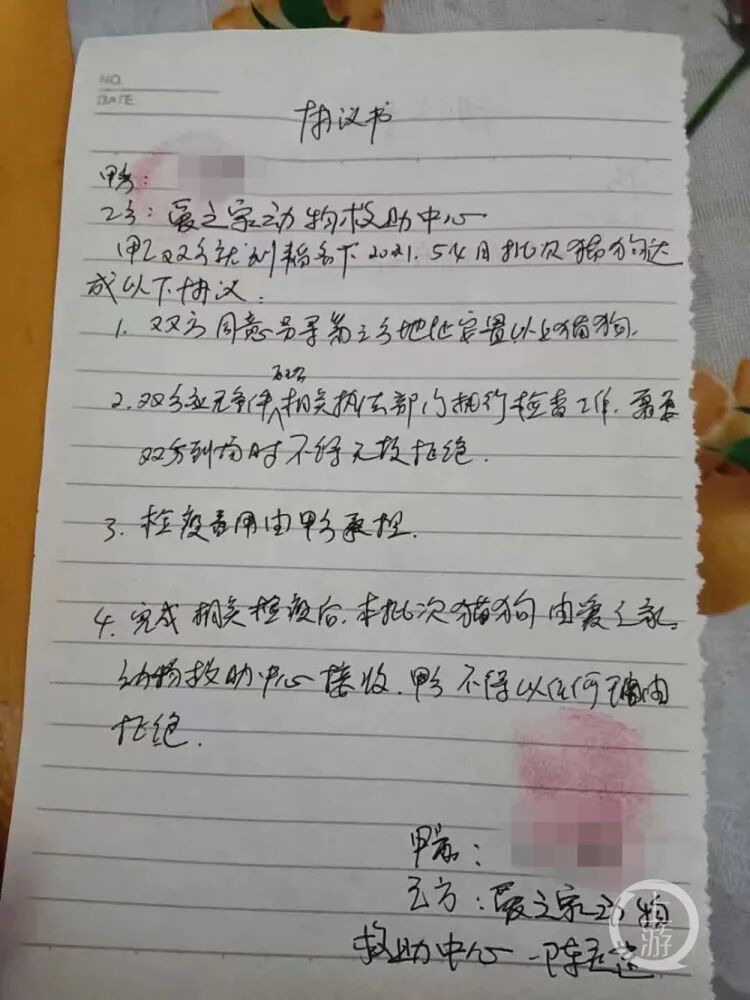 NO.
DATE
协议书
甲方：
乙方：爱之家动物救助中心
甲乙双方就 名下2021.5.4日批次猫狗达
成以下协议：
1. 双方同意另寻第三方地址安置以上猫狗.
2.双方应无条件配合相关执法部门执行检查工作.需要
双方到场时不得无故拒绝.
3. 检疫费用由甲方承担.
4. 完成相关检疫后.本批次猫狗由爱之家
动物救助中心接收.甲方不得以任何理由
拒绝.
甲方：
乙方：爱之家动物
救助中心 陈
上游